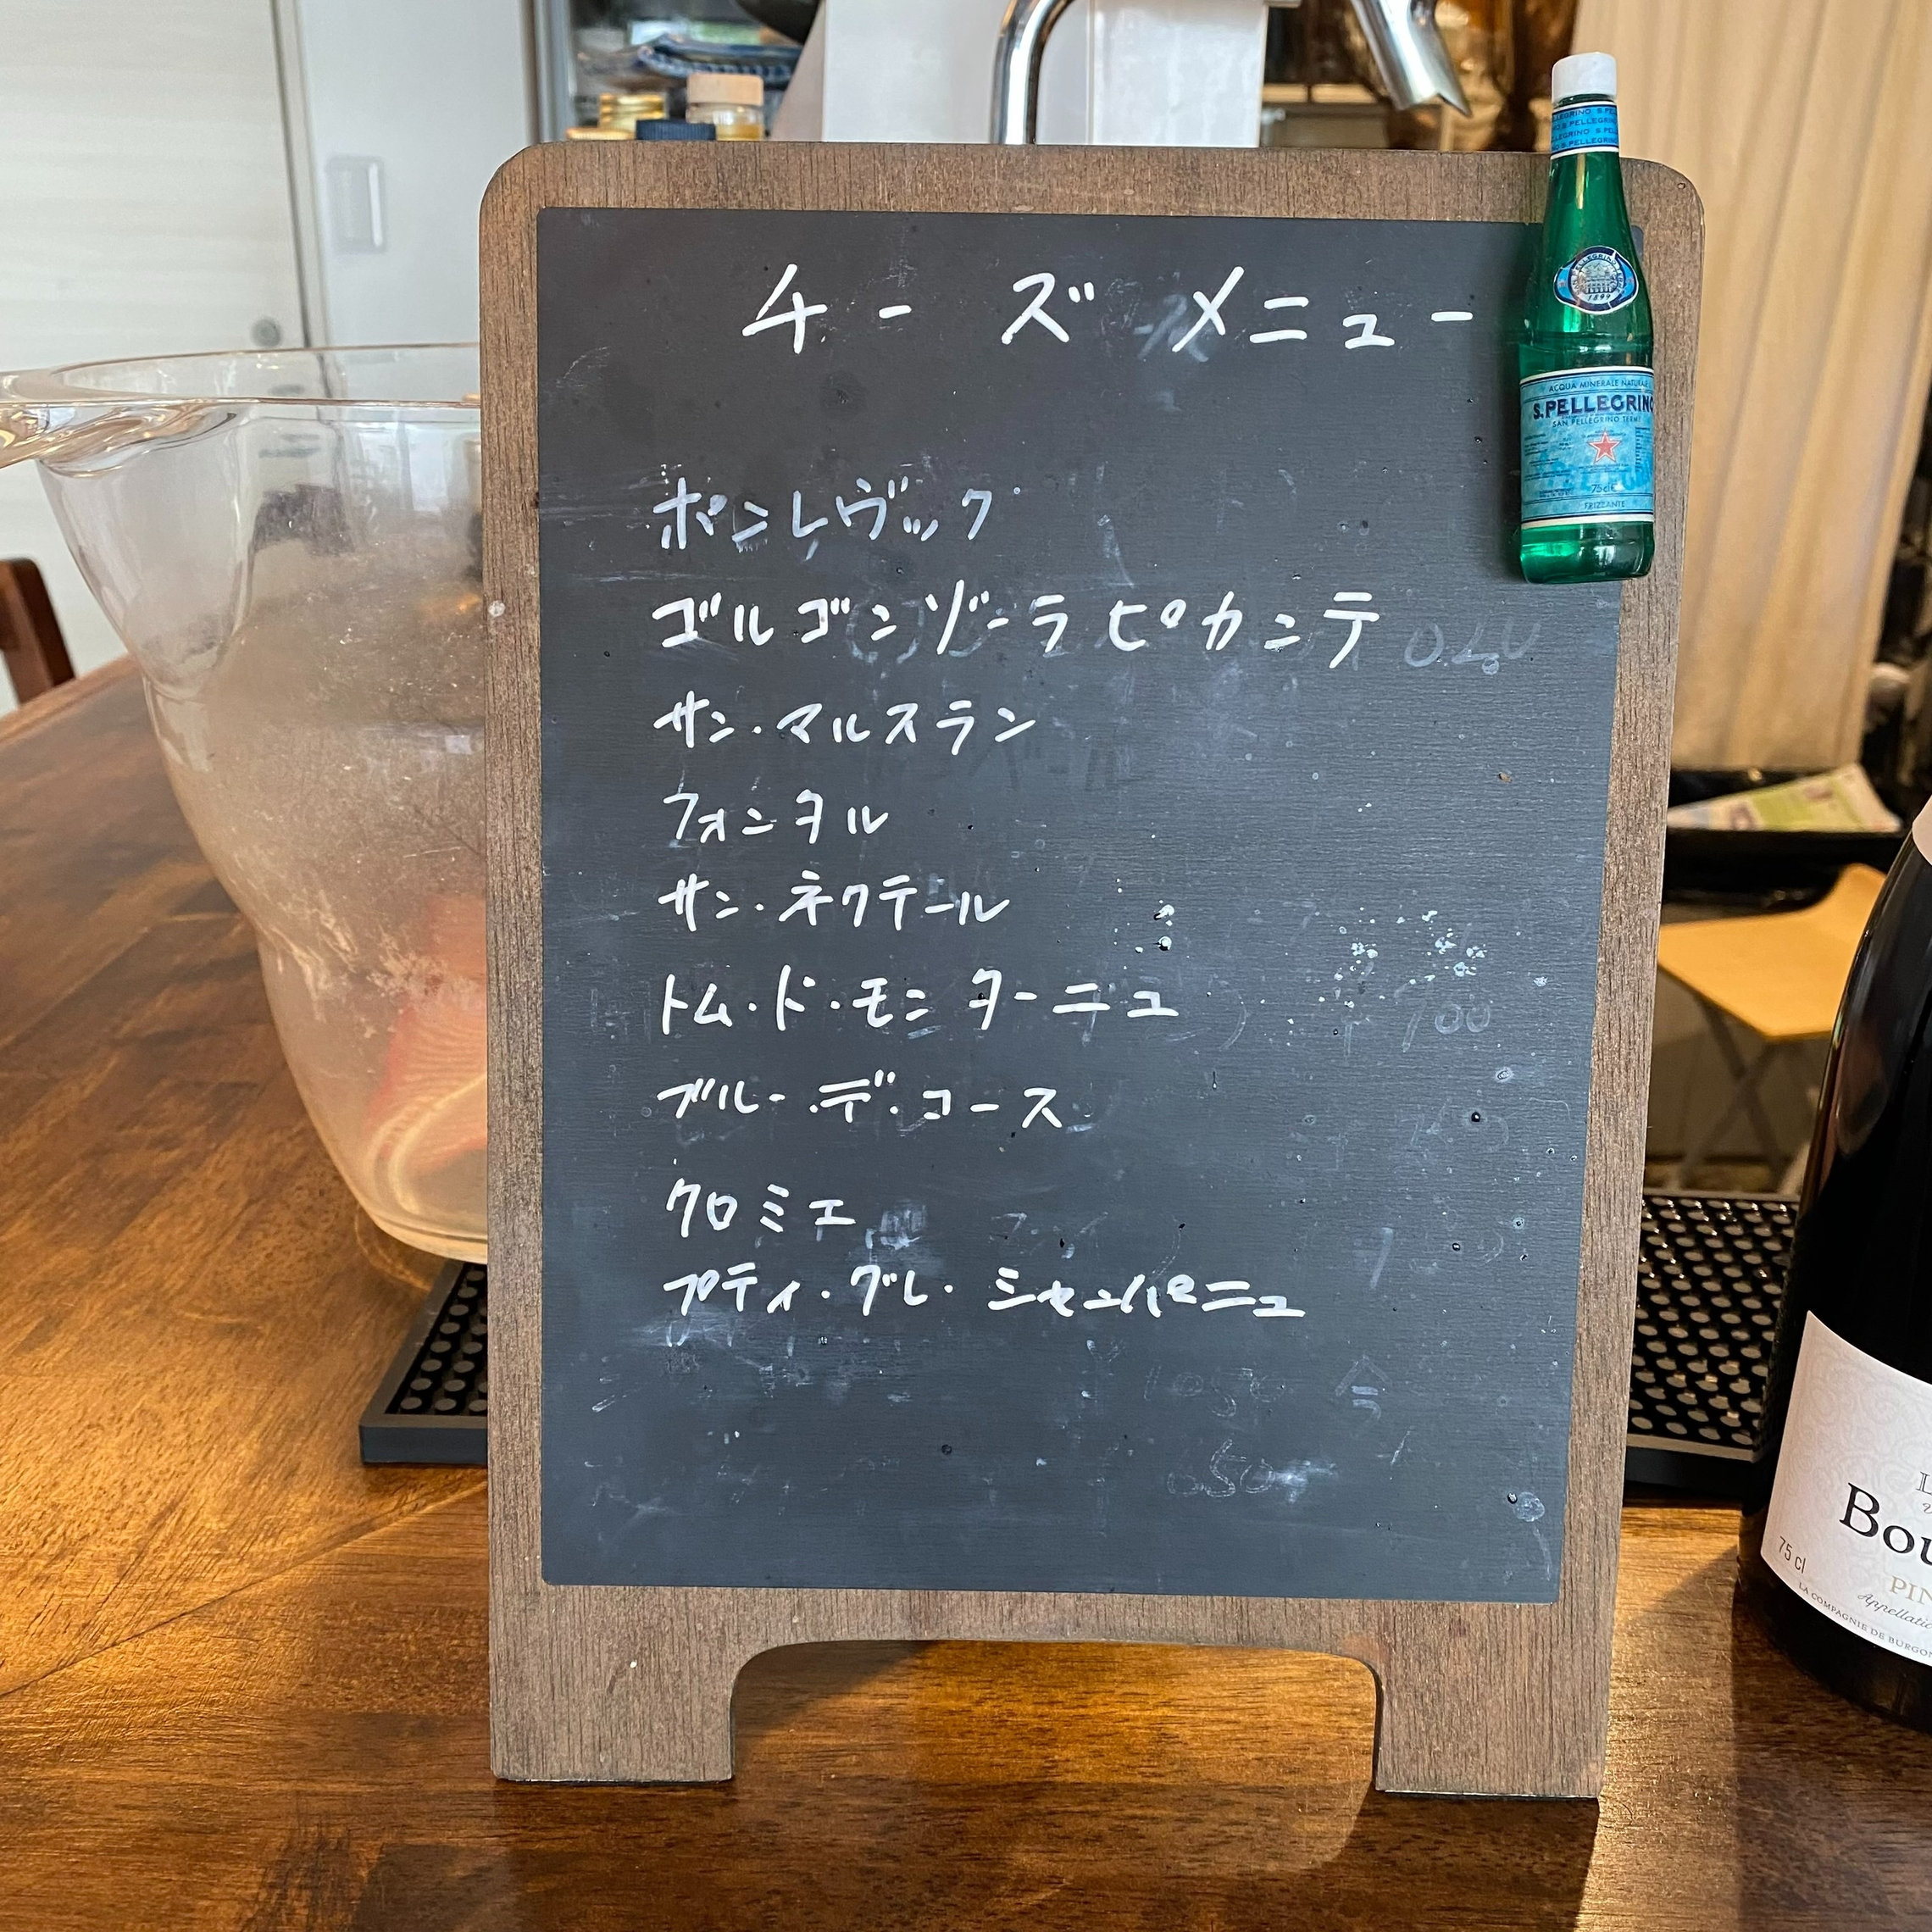 チーズメニュー
ポンレヴック
ゴルゴンゾーラピカンテ
サン・マルスラン
フォンタル
サン・ネクテール
トム・ド・モンターニュ
ブルー・デ・コース
クロミエ
プティ・グレ・シャンパーニュ
S.PELLEGRINO
1899
ACQUA MINERALE NATURALE
S.PELLEGRINO
SAN PELLEGRINO TERME
75cl
FRIZZANTE
Bou
75 cl
PIN
Appellatio
LA COMPAGNIE DE BURGON